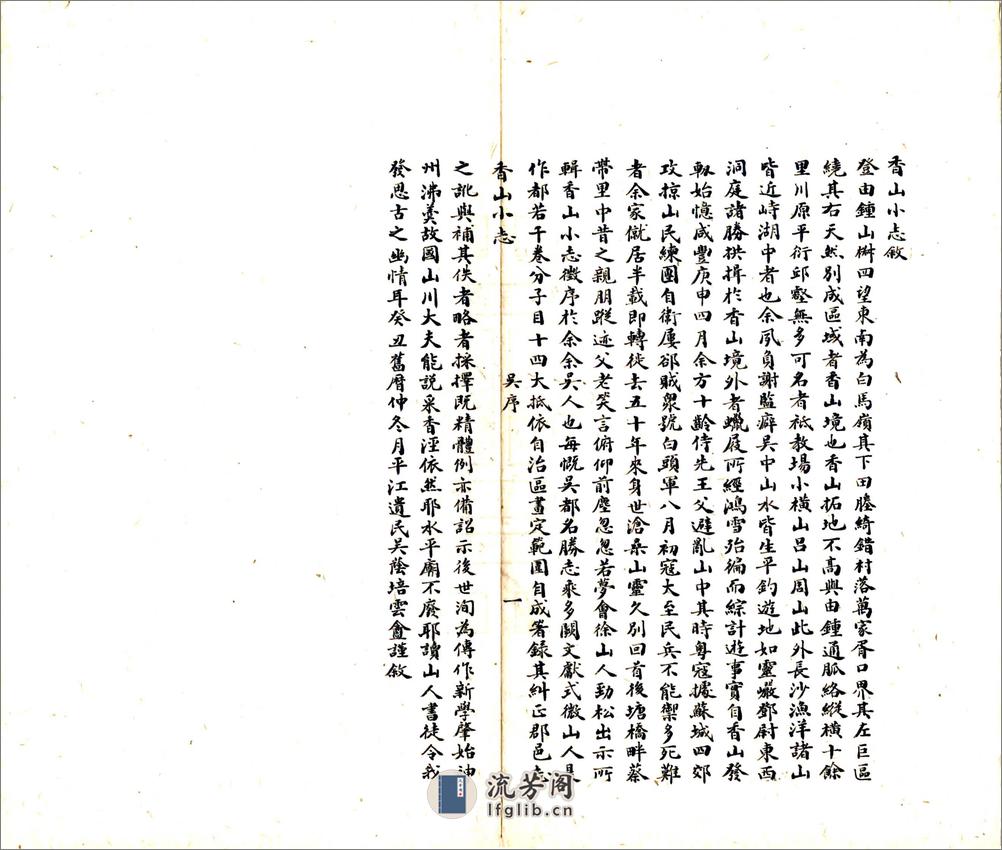 香山小志敘
登由鍾山㟁四望東南為白馬嶺其下田塍綺錯村落萬家胥口界其左巨區
繞其右天然別成區域者香山境也香山拓地不高與由鍾通脈絡縱橫十餘
里川原平衍邱壑無多可名者祗教場小橫山呂山周山此外長沙漁洋諸山
皆近峙湖中者也余夙負謝監癖吳中山水皆生平釣遊地如靈巖鄧尉東西
洞庭諸勝拱揖於香山境外者蠟屐所經鴻雪殆徧而綜計遊事實自香山發
軔始憶咸豐庚申四月余方十齡侍先王父避亂山中其時粵寇據蘇城四郊
攻掠山民練團自衛屢卻賊眾號白頭軍八月初寇大至民兵不能禦多死難
者余家僦居半載即轉徙去五十年來身世滄桑山靈久別回首後塘橋畔蔡
帶里中昔之親朋蹤迹父老笑言俯仰前塵忽忽若夢會徐山人勁松出示所
輯香山小志徵序於余余吳人也每慨吳都名勝志乘多闕文獻式微山人是
作都若干卷分子目十四大抵依自治區畫定範圍自成箸錄其糾正郡邑志
香山小志
吳序
一
之訛與補其佚者略者採擇既精體例亦備詔示後世洵為傳作新學肇始神
州沸羹故國山川大夫能說采香涇依然耶水平廟不廢耶讀山人書徒令我
發思古之幽情耳癸丑舊曆仲冬月平江遺民吳蔭培雲盦謹敘
流芳阁
lfglib.cn